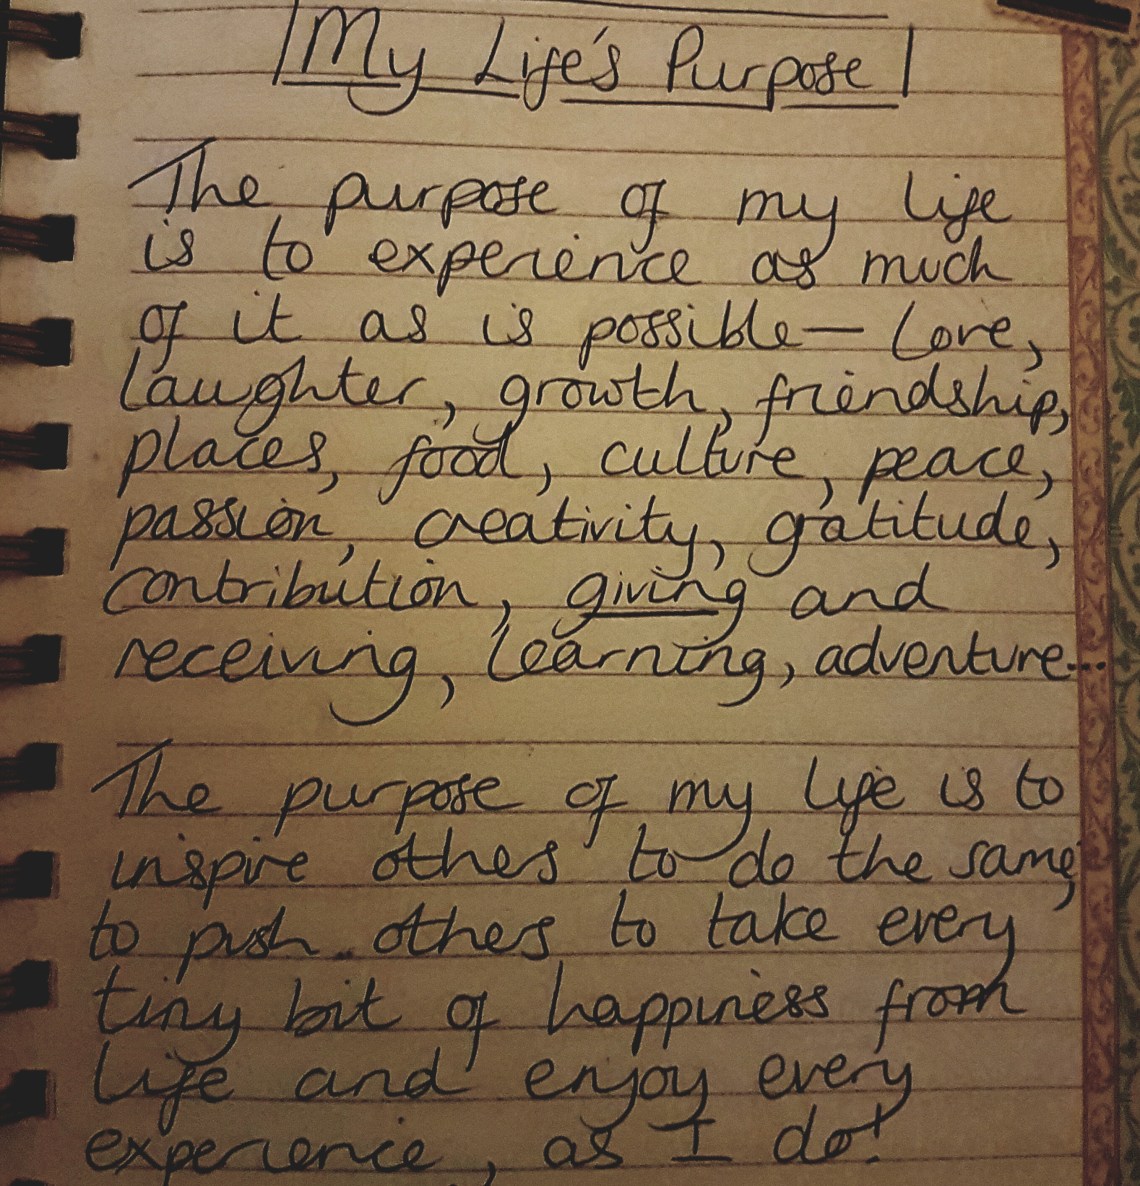 My Life's Purpose
The purpose of my life
is to experience as much
of it as is possible — Love,
laughter, growth, friendship,
places, food, culture, peace,
passion, creativity, gratitude,
contribution, giving and
receiving, learning, adventure...
The purpose of my life is to
inspire others to do the same,
to push others to take every
tiny bit of happiness from
life and enjoy every
experience, as I do!